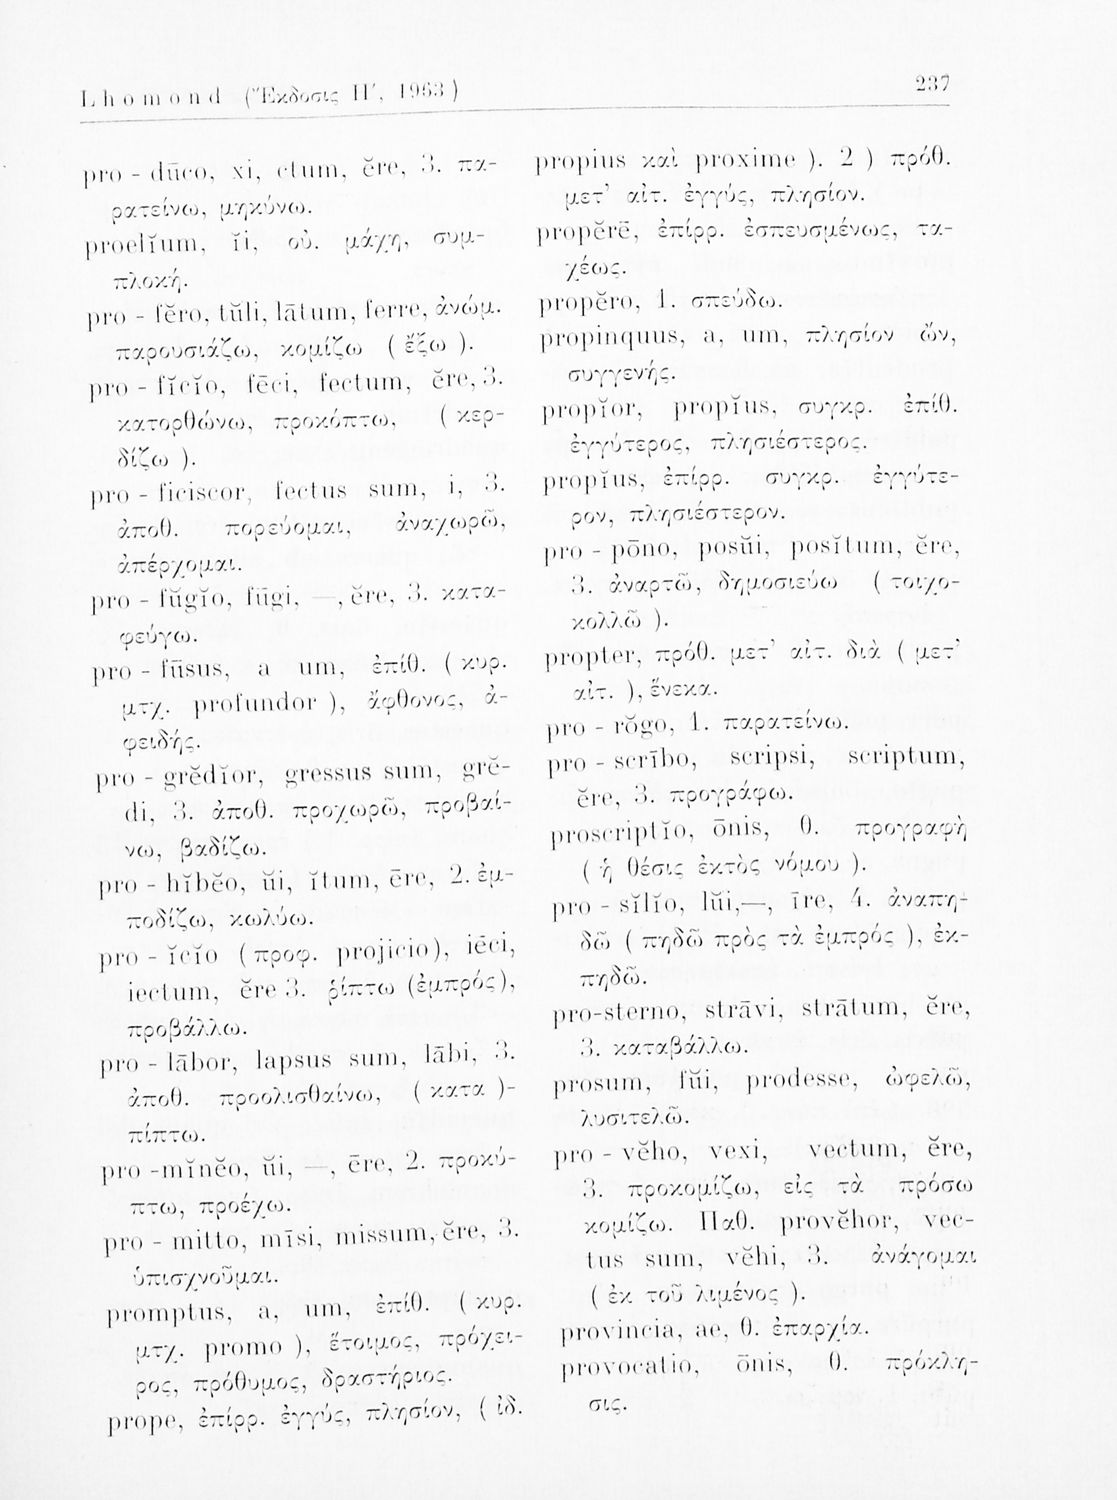 Lhomond (Ἔκδοσις Η′, 1963)
237
pro - dūco, xi, ctum, ĕre, 3. πα-
ρατείνω, μηκύνω.
proelĭum, ĭi, οὐ. μάχη, συμ-
πλοκή.
pro - fĕro, tŭli, lātum, ferre, ἀνώμ.
παρουσιάζω, κομίζω ( ἔξω ).
pro - fĭcĭo, fēci, fectum, ĕre, 3.
κατορθώνω, προκόπτω, ( κερ-
δίζω ).
pro - ficiscor, fectus sum, i, 3.
ἀποθ. πορεύομαι, ἀναχωρῶ,
ἀπέρχομαι.
pro - fŭgĭo, fūgi, —, ĕre, 3. κατα-
φεύγω.
pro - fūsus, a um, ἐπίθ. ( κυρ.
μτχ. profundor ), ἄφθονος, ἀ-
φειδής.
pro - grĕdĭor, gressus sum, grĕ-
di, 3. ἀποθ. προχωρῶ, προβαί-
νω, βαδίζω.
pro - hĭbĕo, ŭi, ĭtum, ēre, 2. ἐμ-
ποδίζω, κωλύω.
pro - ĭcĭo (προφ. projicio), iēci,
iectum, ĕre 3. ῥίπτω (ἐμπρός),
προβάλλω.
pro - lābor, lapsus sum, lābi, 3.
ἀποθ. προολισθαίνω, ( κατα )-
πίπτω.
pro -mĭnĕo, ŭi, —, ēre, 2. προκύ-
πτω, προέχω.
pro - mitto, mīsi, missum, ĕre, 3.
ὑπισχνοῦμαι.
promptus, a, um, ἐπίθ. ( κυρ.
μτχ. promo ), ἕτοιμος, πρόχει-
ρος, πρόθυμος, δραστήριος.
prope, ἐπίρρ. ἐγγύς, πλησίον, ( ἰδ.
propius καὶ proxime ). 2 ) πρόθ.
μετ’ αἰτ. ἐγγύς, πλησίον.
propĕrē, ἐπίρρ. ἐσπευσμένως, τα-
χέως.
propĕro, 1. σπεύδω.
propinquus, a, um, πλησίον ὤν,
συγγενής.
propĭor, propĭus, συγκρ. ἐπίθ.
ἐγγύτερος, πλησιέστερος.
propĭus, ἐπίρρ. συγκρ. ἐγγύτε-
ρον, πλησιέστερον.
pro - pōno, posŭi, posĭtum, ĕre,
3. ἀναρτῶ, δημοσιεύω ( τοιχο-
κολλῶ ).
propter, πρόθ. μετ’ αἰτ. διὰ ( μετ’
αἰτ. ), ἕνεκα.
pro - rŏgo, 1. παρατείνω.
pro - scrībo, scripsi, scriptum,
ĕre, 3. προγράφω.
proscriptĭo, ōnis, θ. προγραφὴ
( ἡ θέσις ἐκτὸς νόμου ).
pro - sĭlĭo, lŭi,—, īre, 4. ἀναπη-
δῶ ( πηδῶ πρὸς τὰ ἐμπρός ), ἐκ-
πηδῶ.
pro-sterno, strāvi, strātum, ĕre,
3. καταβάλλω.
prosum, fŭi, prodesse, ὠφελῶ,
λυσιτελῶ.
pro - vĕho, vexi, vectum, ĕre,
3. προκομίζω, εἰς τὰ πρόσω
κομίζω. Παθ. provĕhor, vec-
tus sum, vĕhi, 3. ἀνάγομαι
( ἐκ τοῦ λιμένος ).
provincia, ae, θ. ἐπαρχία.
provocatio, ōnis, θ. πρόκλη-
σις.